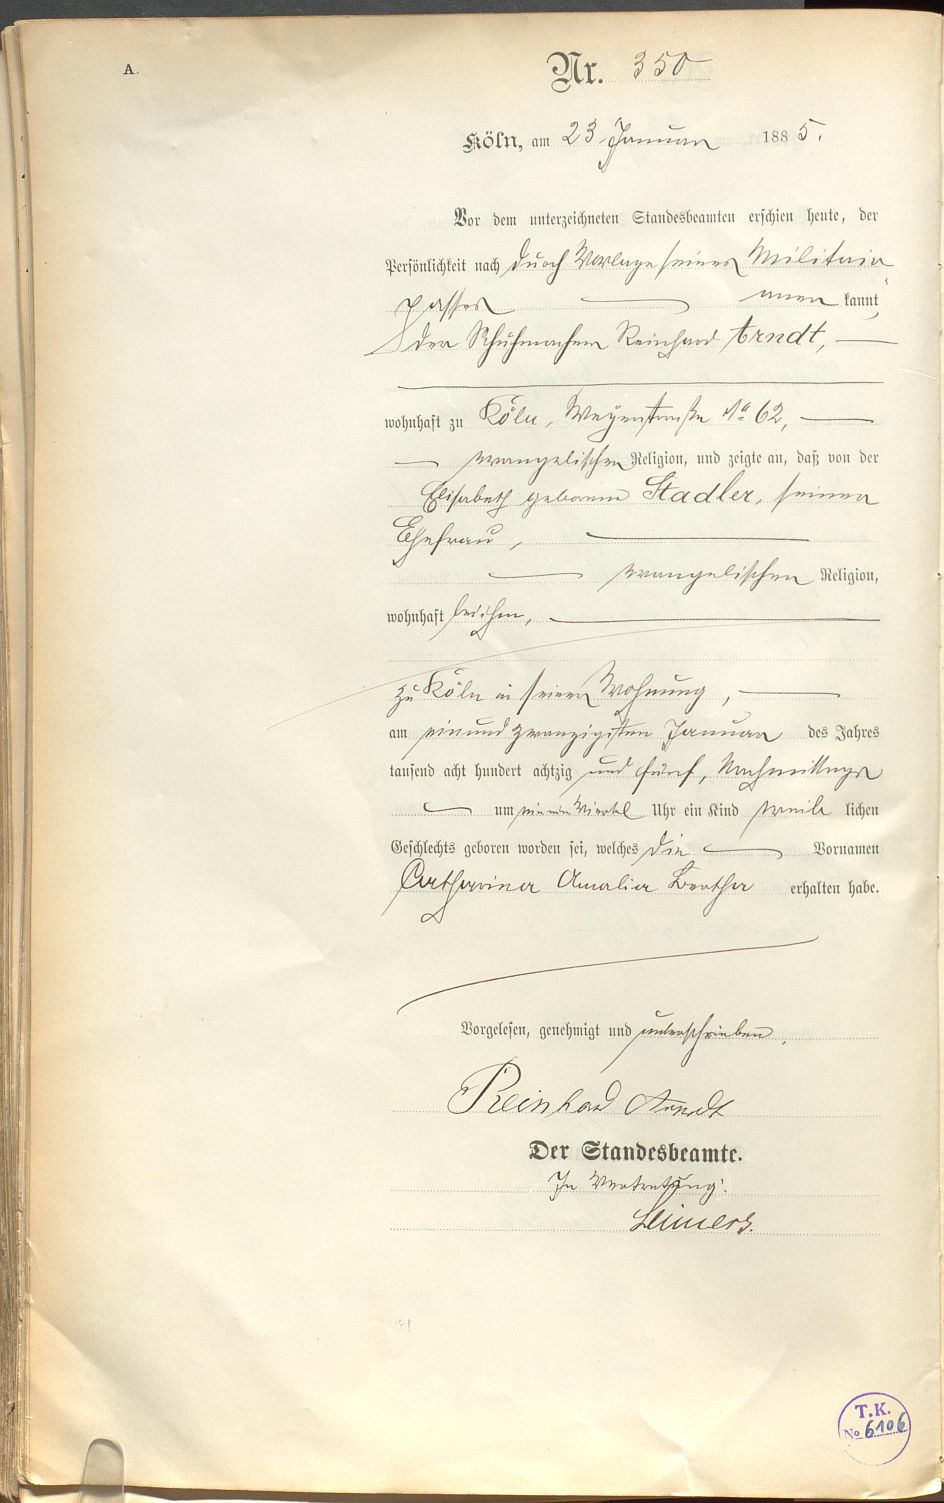 A.
Nr. 350
Köln, am 23 Januar 1885.
Vor dem unterzeichneten Standesbeamten erschien heute, der
Persönlichkeit nach durch Vorlage seines Militair
passes anerkannt,
der Schuhmacher Reinhard Arndt,
wohnhaft zu Köln, Weyerstraße No 62,
evangelischer Religion, und zeigte an, daß von der
Elisabeth geborene Stadler, seiner
Ehefrau,
evangelischer Religion,
wohnhaft bei ihm,
zu Köln in seiner Wohnung,
am einundzwanzigsten Januar des Jahres
tausend acht hundert achtzig und fünf, Nachmittags
um ein Viertel Uhr ein Kind weiblichen
Geschlechts geboren worden sei, welches die Vornamen
Catharina Amalia Bertha erhalten habe.
Vorgelesen, genehmigt und unterschrieben.
Reinhard Arndt
Der Standesbeamte.
In Vertretung:
T.K.
No 6106